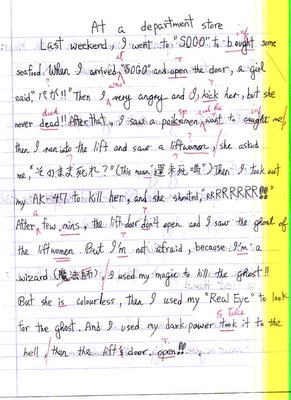 At a department store
Last weekend, I went to "SOGO" to bought some
seafood. When I arrived "SOGO" and open the door, a girl
said "バカ!!" Then I very angry and I kick her, but she
never dead!! After that, I saw a policemen want to caught me,
then I ran into the lift and saw a liftwomen, she asked
me, "そのまま死れ?" (This mean "還未死嗎") Then I took out
my AK-47 to kill her, and she shouted, "RRRRRRRR!!!"
After few mins, the lift door don't open and I saw the ghost of
the liftwomen. But I'm not afraid, because I'm a
wizard (魔法師), I used my magic to kill the ghost!!
But she is colourless, then I used my "Real Eye" to look
for the ghost. And I used my dark power took it to the
hell, then the lift's door open!!!